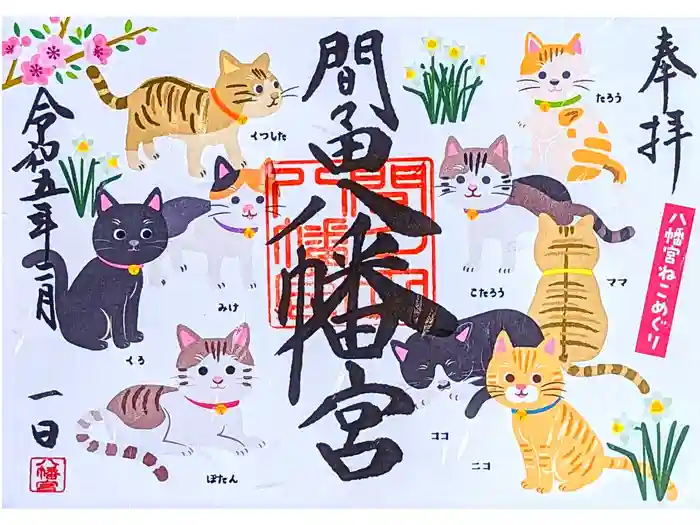 奉拝
八幡宮ねこめぐり
間々田八幡宮
令和五年二月
一日
八幡宮
くつした
たろう
みけ
こたろう
ママ
くろ
ぼたん
ココ
ニコ